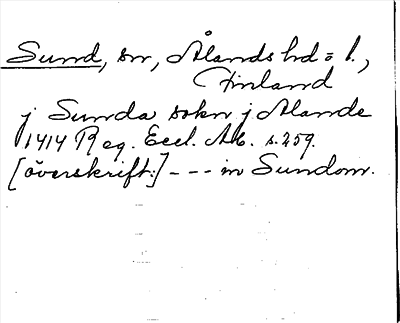 Sund, sn, Ålands hd o l.,
Finland
j Sunda sokn j Alande
1414 Reg. Eccl. Ab. s. 259.
[överskrift:] --- in Sundom.